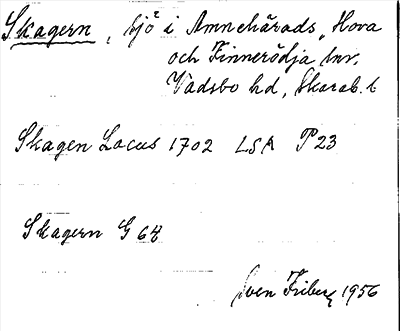 Skagern, sjö i Amnehärads, Hova
och Finnerödja snr.
Vadsbo hd, Skarab. l
Skagen Lacus 1702 LSA P23
Skagern G 64
Sven Friberg 1956